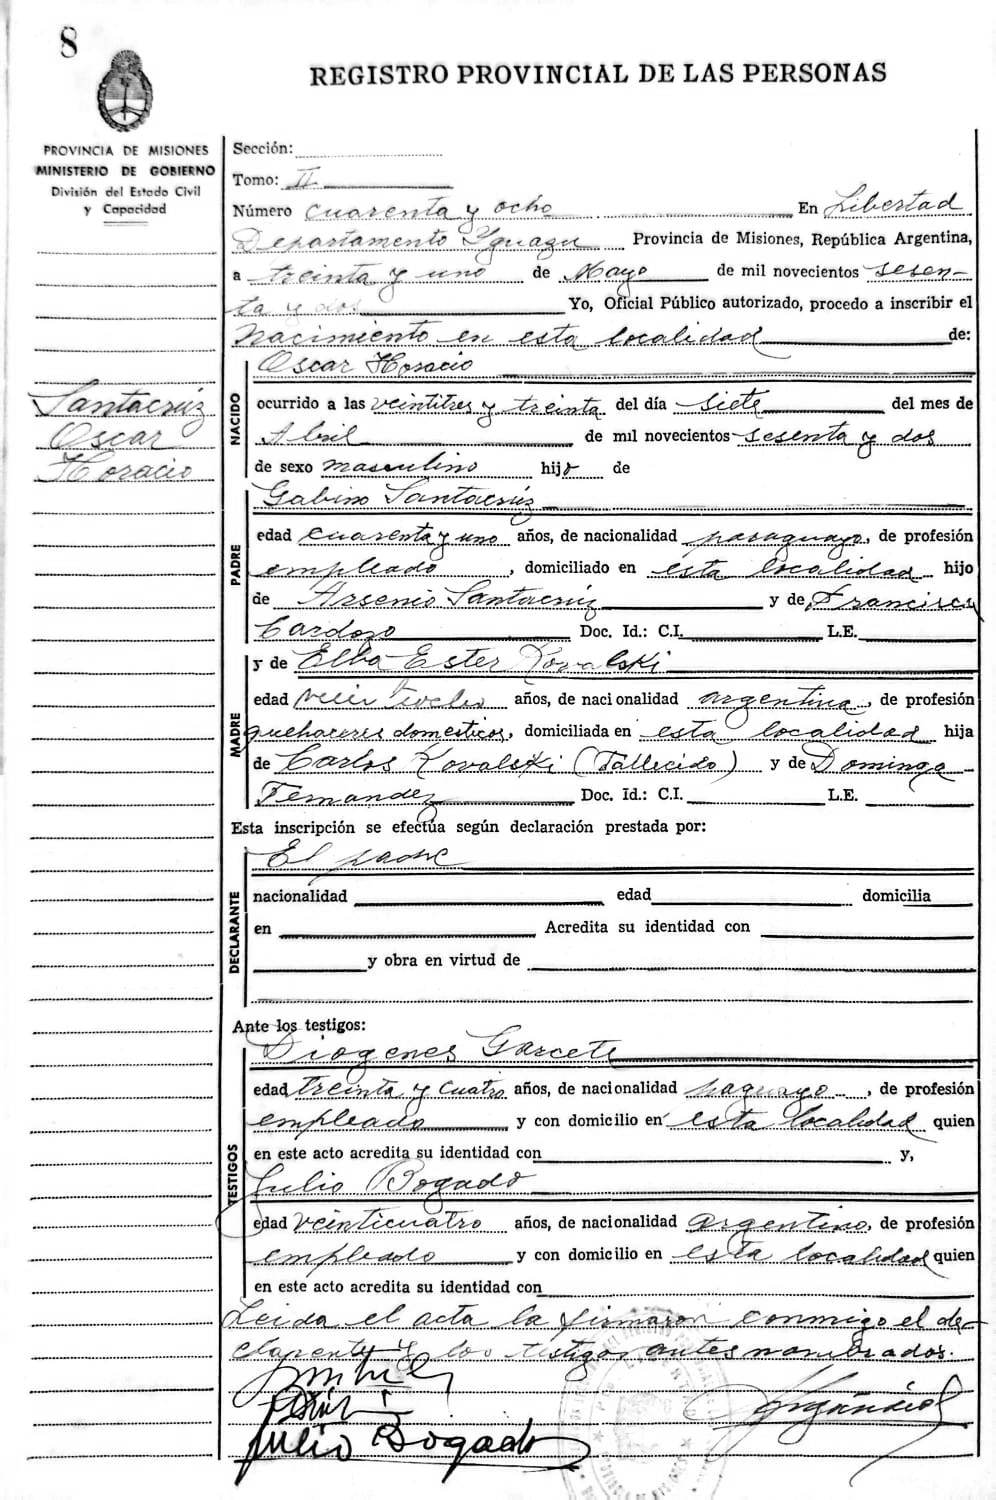 8
REGISTRO PROVINCIAL DE LAS PERSONAS
PROVINCIA DE MISIONES
MINISTERIO DE GOBIERNO
División del Estado Civil
y Capacidad
Santacrúz
Oscar
Horacio
Sección:
Tomo: II
Número cuarenta y ocho En Libertad
Departamento Yguazu Provincia de Misiones, República Argentina,
a treinta y uno de Mayo de mil novecientos sesen-
ta y dos Yo, Oficial Público autorizado, procedo a inscribir el
Nacimiento en esta localidad de:
NACIDO
Oscar Horacio
ocurrido a las veintitres y treinta del día siete del mes de
Abril de mil novecientos sesenta y dos
de sexo masculino hijo de
PADRE
Gabino Santacrúz
edad cuarenta y uno años, de nacionalidad paraguayo, de profesión
empleado, domiciliado en esta localidad hijo
de Arsenio Santacrúz y de Francisca
Cardozo Doc. Id.: C.I. L.E.
MADRE
y de Elba Ester Kovalski
edad años, de nacionalidad argentina, de profesión
quehaceres domesticos, domiciliada en esta localidad hija
de Carlos Kovalski (Fallecido) y de Dominga
Fernandez Doc. Id.: C.I. L.E.
Esta inscripción se efectúa según declaración prestada por:
DECLARANTE
El padre
nacionalidad edad domicilia
en Acredita su identidad con
y obra en virtud de
Ante los testigos:
TESTIGOS
Diogenes Garcete
edad treinta y cuatro años, de nacionalidad paguayo, de profesión
empleado y con domicilio en esta localidad quien
en este acto acredita su identidad con y,
Julio Bogado
edad veinticuatro años, de nacionalidad argentino, de profesión
empleado y con domicilio en esta localidad quien
en este acto acredita su identidad con
Leida el acta la firmaron conmigo el de-
clarente y los testigos antes nombrados.
Julio Bogado